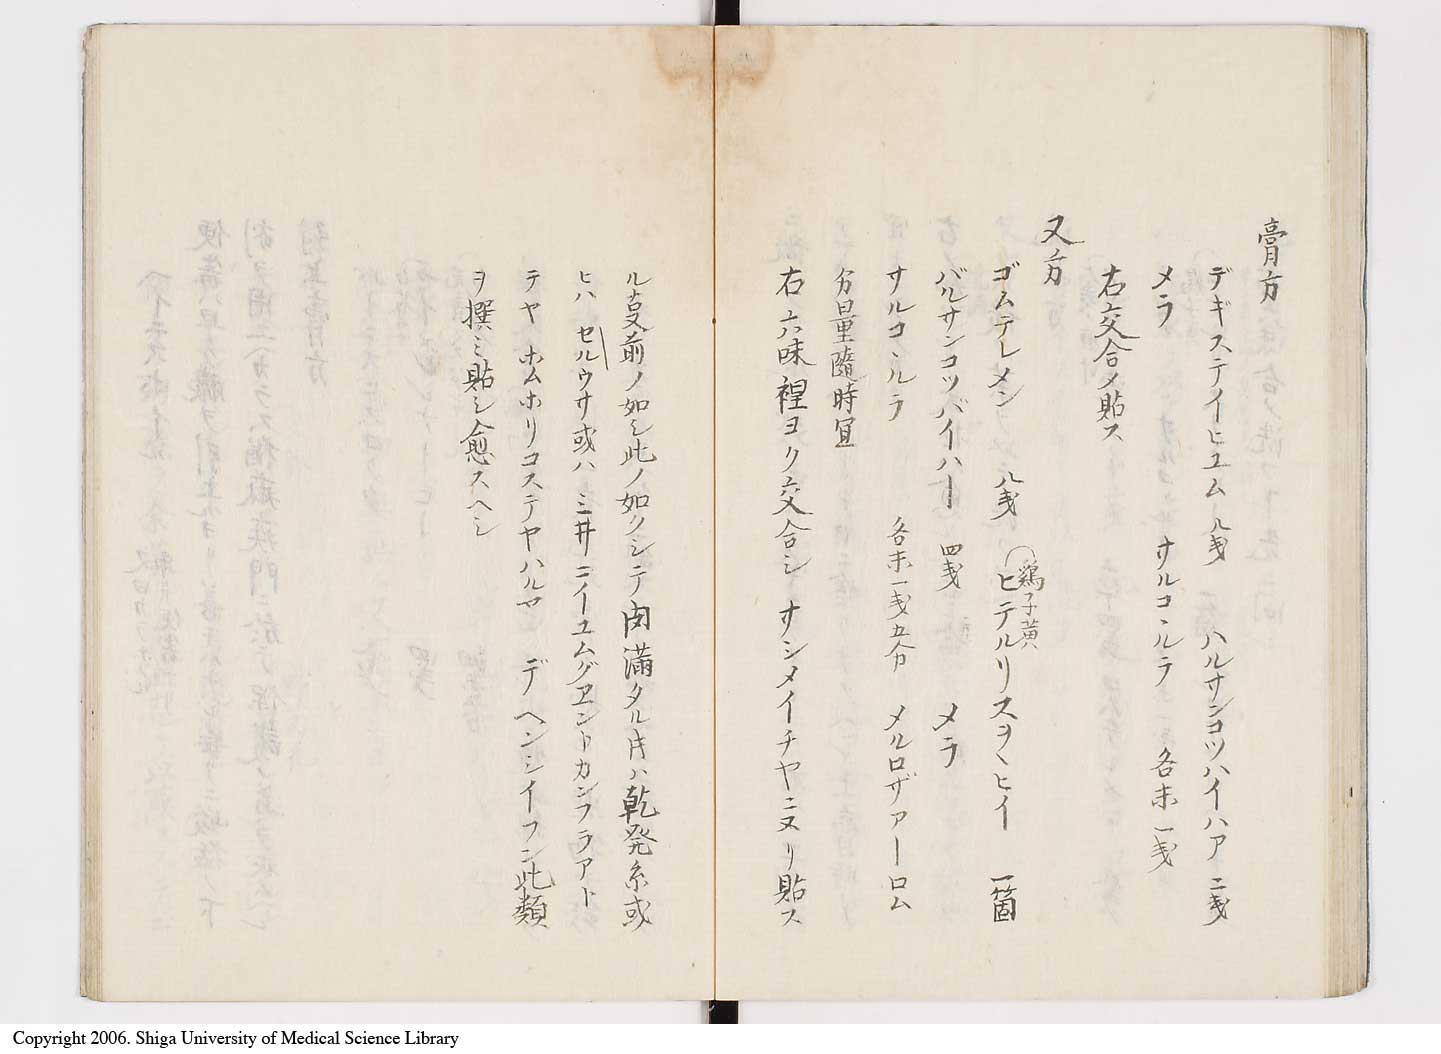 膏方
デキステイーヒユム 八戔 ハルサンコツハイハア 二戔
メラ サルココルラ 各末一戔
右交合メ貼ス
又方
ゴムテレメン 八戔 ヒテルリスヲヽヒイ 一箇
鶏子黄
バルサンコツバイハー 四戔 メラ
サルココルラ 各末一戔五分 メルロザアーロム
分量随時宜
右六味 ヨク交合シ オシメイチヤニヌリ貼ス
ル 前ノ如シ此ノ如クシテ肉満タル片ハ乾発糸或
ヒハ セルウサ或ハ ミ井ニイーユムグヱントカンフラアト
テヤホムホリコステヤハルマ デヘンシイフン此類
ヲ撰ミ貼シ愈スヘシ
Copyright 2006. Shiga University of Medical Science Library